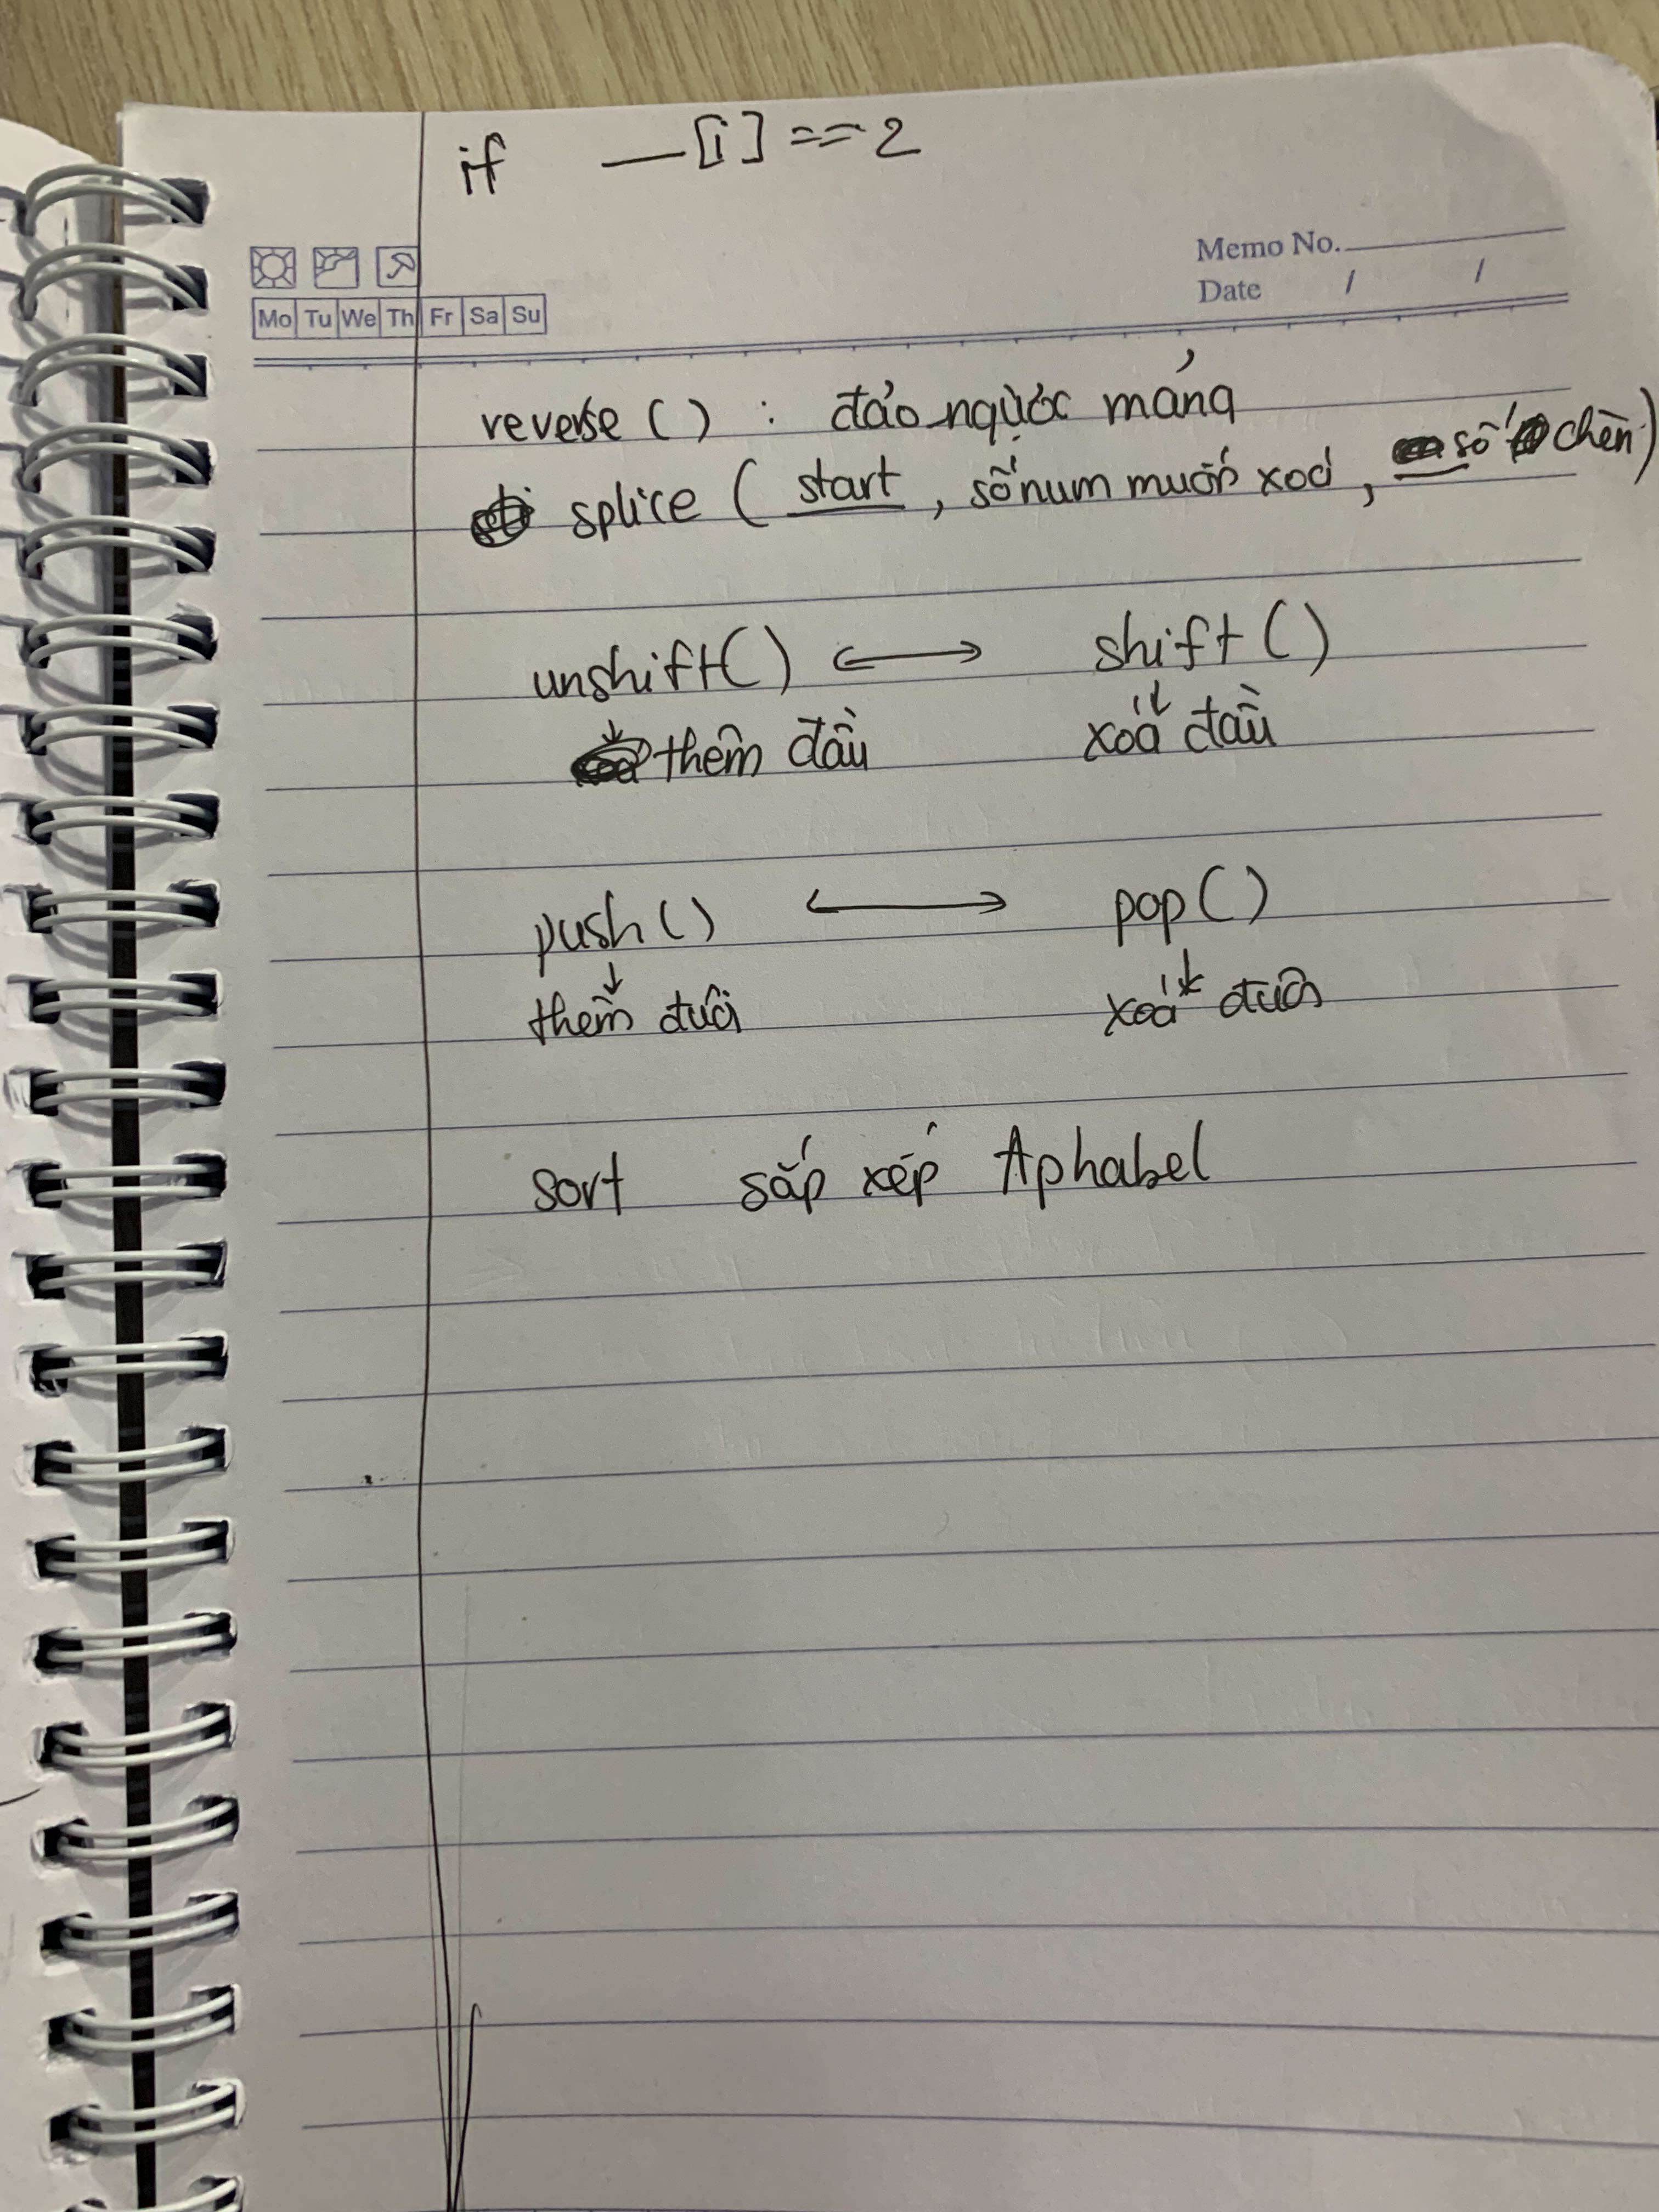 if __[i] == 2
Memo No.
Date / /
Mo Tu We Th Fr Sa Su
reverse ( ) : đảo ngược mảng
splice ( start , số num muốn xoá , số chèn )
unshift() ⟷ shift ()
↓ ↓
thêm đầu xoá đầu
push () ⟷ pop ()
↓ ↓
thêm đuôi xoá đuôi
sort sắp xếp Aphabel